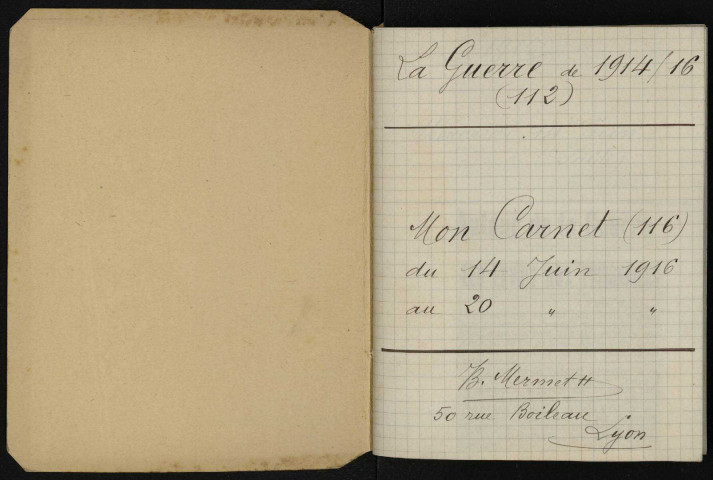 La Guerre de 1914/16
(112)
Mon Carnet (116)
du 14 Juin 1916
au 20 " "
B. Mermet
50 rue Boileau
Lyon